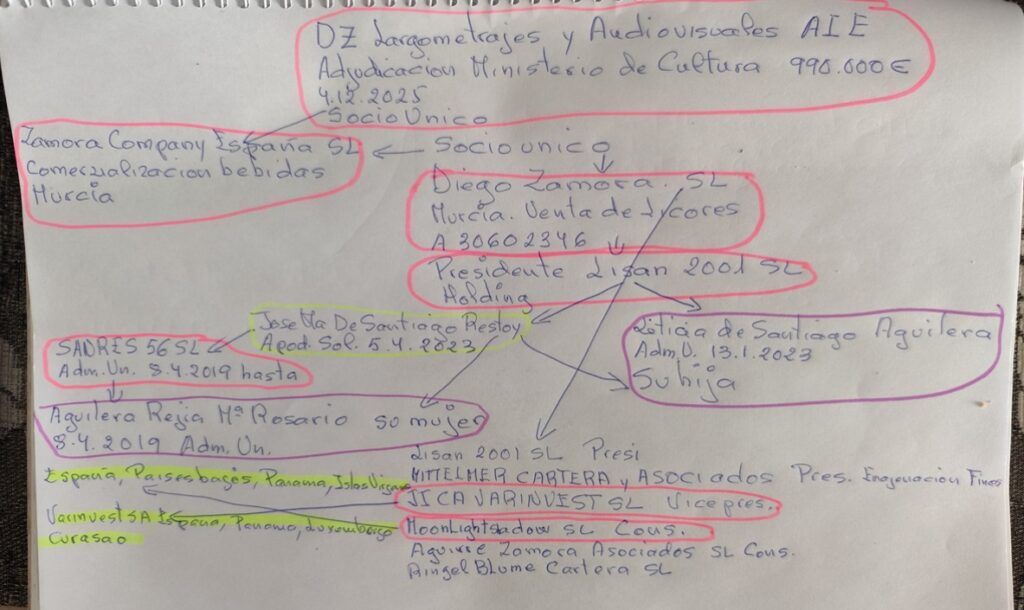 DZ Largometrajes y Audiovisuales AIE
Adjudicacion Ministerio de Cultura 990.000€
4.12.2025
Socio Unico
Zamora Company España SL
Comerzualizacion bebidas
Murcia
Socio unico
Diego Zamora. SL
Murcia. Venta de Lycores
A 30602346
Presidente Lisan 2001 SL
Holding
Jose Ma De Santiago Restoy
Apod. Sol. 5.4.2023
Leticia de Santiago Aguilera
Adm.U. 13.1.2023
Su hija
SADRES 56 SL
Adm.Un. 8.4.2019 hasta
Aguilera Rejia Mª Rosario su mujer
8.4.2019 Adm.Un.
Lisan 2001 SL Presi
MITTELMER CARTERA y ASOCIADOS Pres. Enajenacion Fines
España, Paises bages, Panama, Islas Virgines
JICA VARINVEST SL Vicepres.
Varinvest SA España, Panama, Luxemburgo
Curasao
MoonLightshadow SL Cons.
Aguirre Zamora Asociados SL Cons.
Ringel Blume Cartera SL